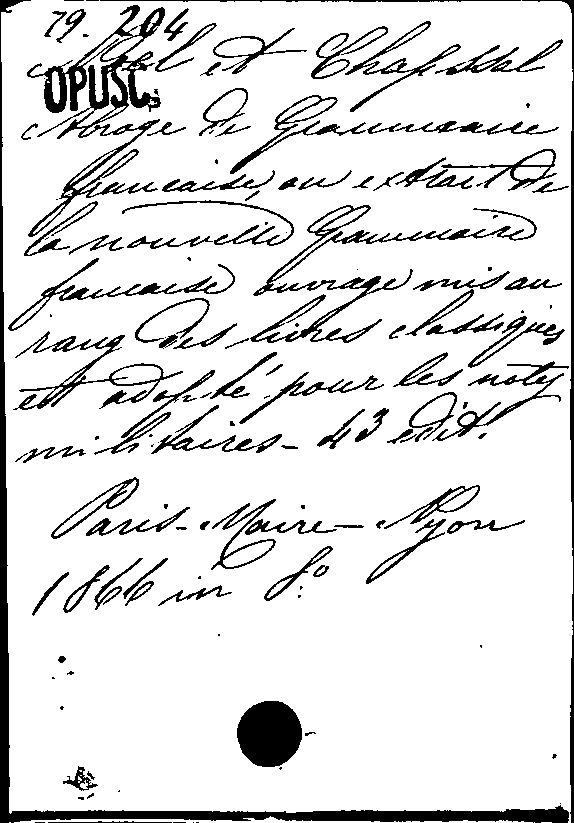 79. 204
Noel et Chapssal
OPUSC.
Abroge de Grammaire
francaise, ou extrait de
la nouvelle Grammaire
francaise ouvrage mis au
rang des livres classiques
est adopté pour les
militaires - 43 edit.
Paris - Maire - Nyon
1866 in 8.o